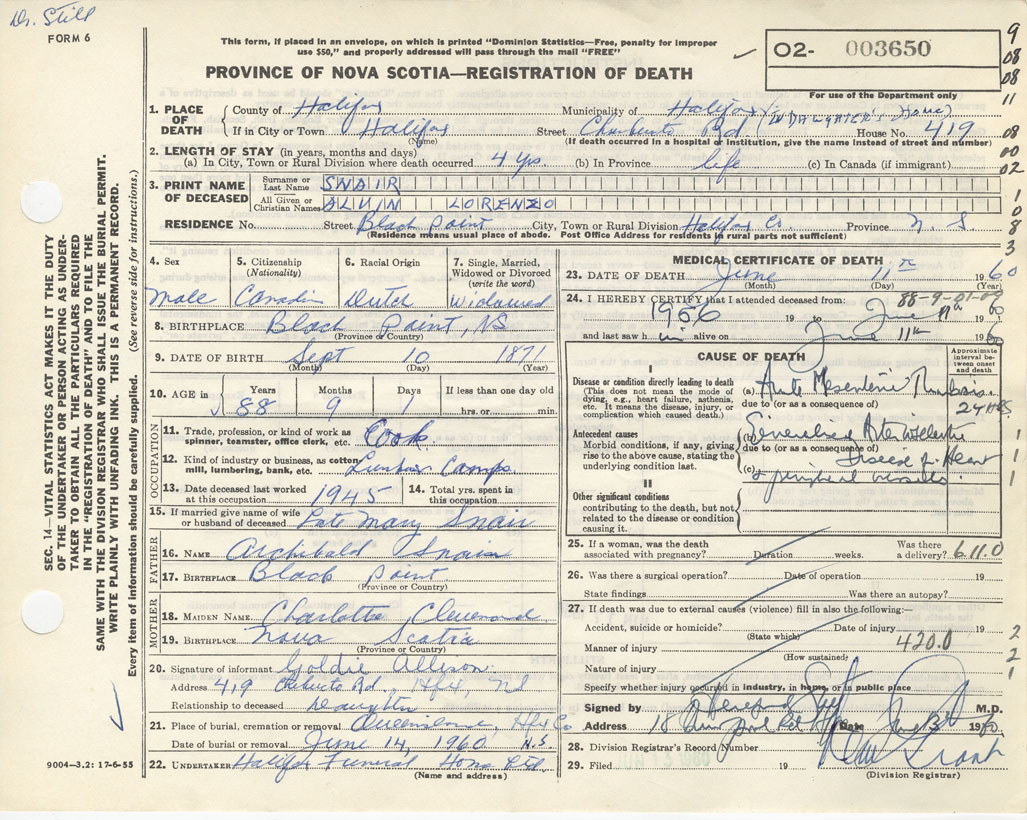 Dr. Still
FORM 6
This form, if placed in an envelope, on which is printed "Dominion Statistics—Free, penalty for improper
use $50," and properly addressed will pass through the mail "FREE"
O2- 003650
PROVINCE OF NOVA SCOTIA—REGISTRATION OF DEATH
For use of the Department only
1. PLACE OF DEATH County of Halifax Municipality of Halifax (in DAUGHTER'S Home)
If in City or Town Halifax Street Rd House No. 419
(Name) (If death occurred in a hospital or institution, give the name instead of street and number)
2. LENGTH OF STAY (in years, months and days)
(a) In City, Town or Rural Division where death occurred. 4 yrs. (b) In Province life (c) In Canada (if immigrant)
3. PRINT NAME OF DECEASED Surname or Last Name SWAIR
All Given or Christian Names ALVIN LORENZO
RESIDENCE No. Street Black Point City, Town or Rural Division Halifax Co. Province N. S.
(Residence means usual place of abode. Post Office Address for residents in rural parts not sufficient)
4. Sex Male
5. Citizenship (Nationality)
6. Racial Origin Dutch
7. Single, Married, Widowed or Divorced (write the word) Widowed
8. BIRTHPLACE Black Point, NS
(Province or Country)
9. DATE OF BIRTH Sept 10 1871
(Month) (Day) (Year)
10. AGE in Years 88 Months 9 Days 1 If less than one day old hrs. or min.
OCCUPATION
11. Trade, profession, or kind of work as spinner, teamster, office clerk, etc. Cook
12. Kind of industry or business, as cotton-mill, lumbering, bank, etc. Lumber Camps
13. Date deceased last worked at this occupation 1945 14. Total yrs. spent in this occupation
15. If married give name of wife or husband of deceased Late Mary Snair
FATHER
16. NAME Archibald Snair
17. BIRTHPLACE Black Point
(Province or Country)
MOTHER
18. MAIDEN NAME Charlotte
19. BIRTHPLACE Nova Scotia
(Province or Country)
20. Signature of informant Goldie Allison
Address 419 Rd., Hfx, NS
Relationship to deceased Daughter
21. Place of burial, cremation or removal Queensland, Hfx Co
Date of burial or removal June 14, 1960 N.S.
22. UNDERTAKER Halifax Funeral Home Ltd
(Name and address)
MEDICAL CERTIFICATE OF DEATH
23. DATE OF DEATH June 11th 1960
(Month) (Day) (Year)
88-9-01-09
24. I HEREBY CERTIFY that I attended deceased from:
1956 19 to June 11th 1960
and last saw him alive on June 11th 1960
CAUSE OF DEATH
Approximate interval between onset and death
I
Disease or condition directly leading to death
(This does not mean the mode of dying, e.g., heart failure, asthenia, etc. It means the disease, injury, or complication which caused death.)
(a) Acute Mesenteric Thrombosis. 24 Hrs.
due to (or as a consequence of)
Antecedent causes
Morbid conditions, if any, giving rise to the above cause, stating the underlying condition last.
(b)
due to (or as a consequence of) Disease of Heart
(c) & peripheral vessels.
II
Other significant conditions
contributing to the death, but not related to the disease or condition causing it.
25. If a woman, was the death associated with pregnancy? Duration weeks. Was there a delivery? 611.0
26. Was there a surgical operation? Date of operation 19
State findings Was there an autopsy?
27. If death was due to external causes (violence) fill in also the following:—
Accident, suicide or homicide? Date of injury 19
(State which)
Manner of injury 420.0
(How sustained)
Nature of injury
Specify whether injury occurred in industry, in home, or in public place
Signed by M.D.
Address 18 Rd Date June 13 1960
28. Division Registrar's Record Number
29. Filed 19
(Division Registrar)
SEC. 14—VITAL STATISTICS ACT MAKES IT THE DUTY
OF THE UNDERTAKER OR PERSON ACTING AS UNDER-
TAKER TO OBTAIN ALL THE PARTICULARS REQUIRED
IN THE "REGISTRATION OF DEATH" AND TO FILE THE
SAME WITH THE DIVISION REGISTRAR WHO SHALL ISSUE THE BURIAL PERMIT.
WRITE PLAINLY WITH UNFADING INK. THIS IS A PERMANENT RECORD.
Every item of information should be carefully supplied. (See reverse side for instructions.)
9004—3.2: 17-6-55
9
08
08
11
08
00
02
1
0
8
3
1
1
1
2
2
1